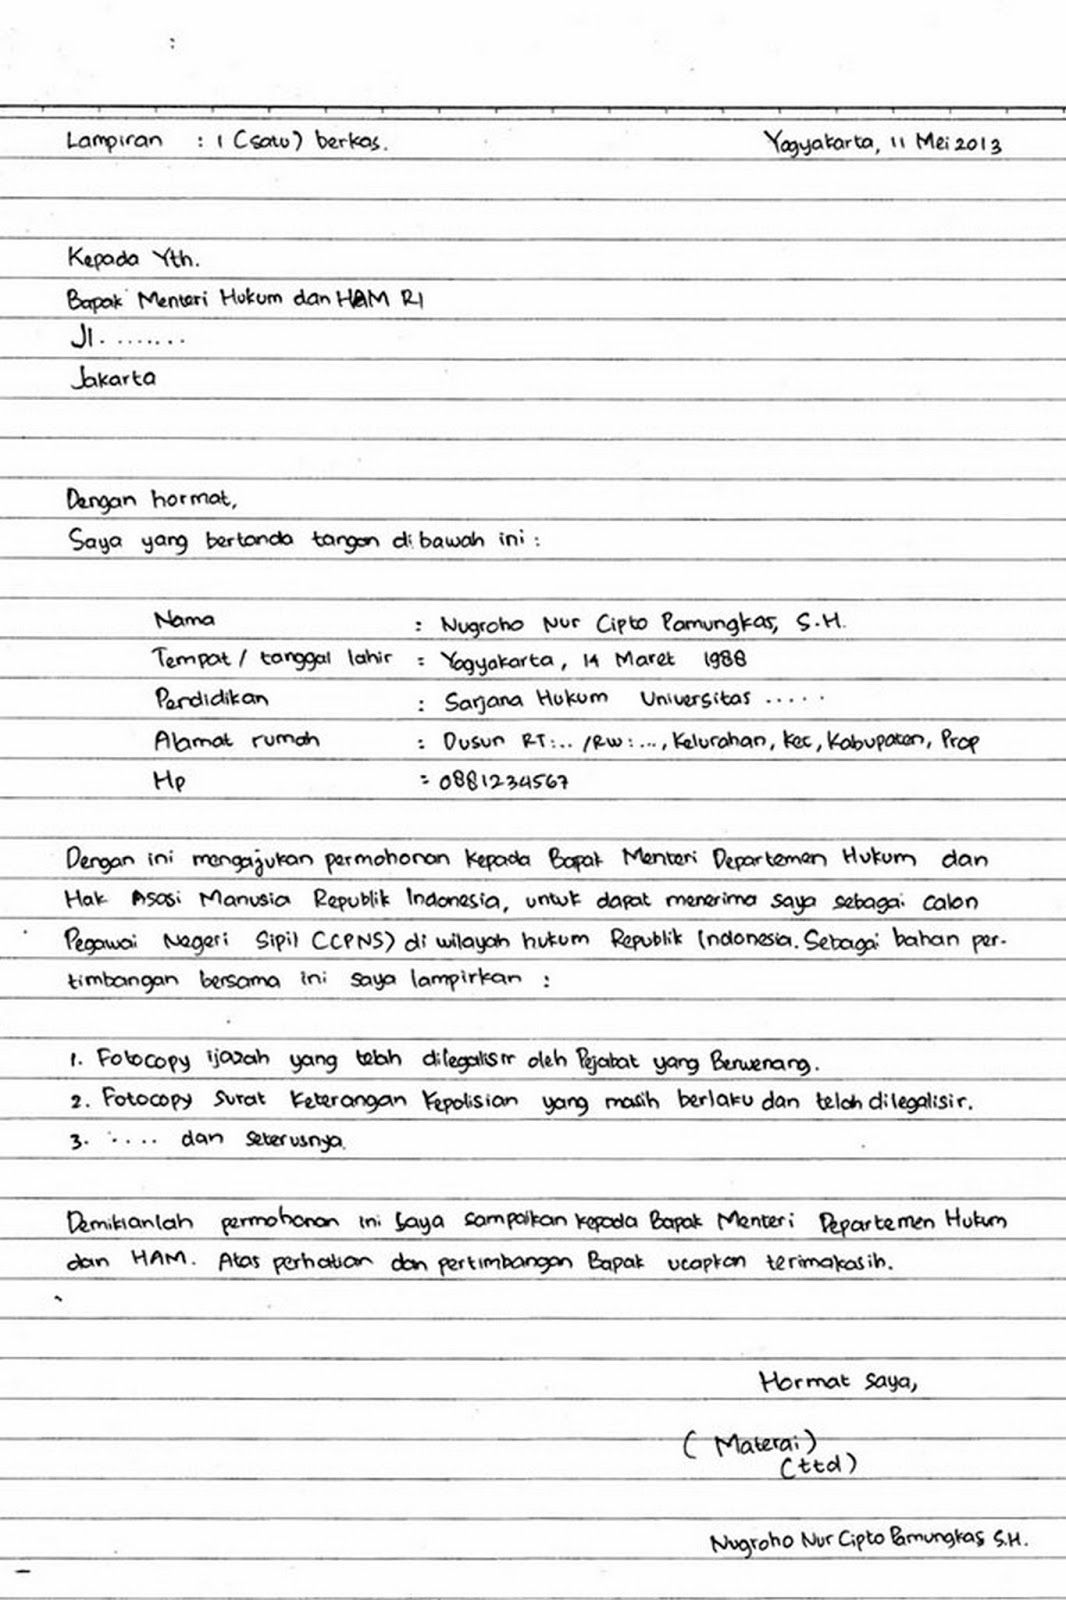 Lampiran : 1 (satu) berkas. Yogyakarta, 11 Mei 2013
Kepada Yth.
Bapak Menteri Hukum dan HAM RI
Jl. .......
Jakarta
Dengan hormat,
Saya yang bertanda tangan dibawah ini :
Nama : Nugroho Nur Cipto Pamungkas, S.H.
Tempat / tanggal lahir : Yogyakarta, 14 Maret 1988
Pendidikan : Sarjana Hukum Universitas .....
Alamat rumah : Dusun RT:.. /RW:..., Kelurahan, Kec, Kabupaten, Prop
Hp : 0881234567
Dengan ini mengajukan permohonan kepada Bapak Menteri Departemen Hukum dan
Hak Asasi Manusia Republik Indonesia, untuk dapat menerima saya sebagai calon
Pegawai Negeri Sipil (CPNS) di wilayah hukum Republik Indonesia. Sebagai bahan per-
timbangan bersama ini saya lampirkan :
1. Fotocopy ijazah yang telah dilegalisir oleh Pejabat yang Berwenang.
2. Fotocopy Surat Keterangan Kepolisian yang masih berlaku dan telah dilegalisir.
3. ..... dan seterusnya.
Demikianlah permohonan ini saya sampaikan kepada Bapak Menteri Departemen Hukum
dan HAM. Atas perhatian dan pertimbangan Bapak ucapkan terimakasih.
Hormat saya,
( Materai )
(ttd)
Nugroho Nur Cipto Pamungkas S.H.